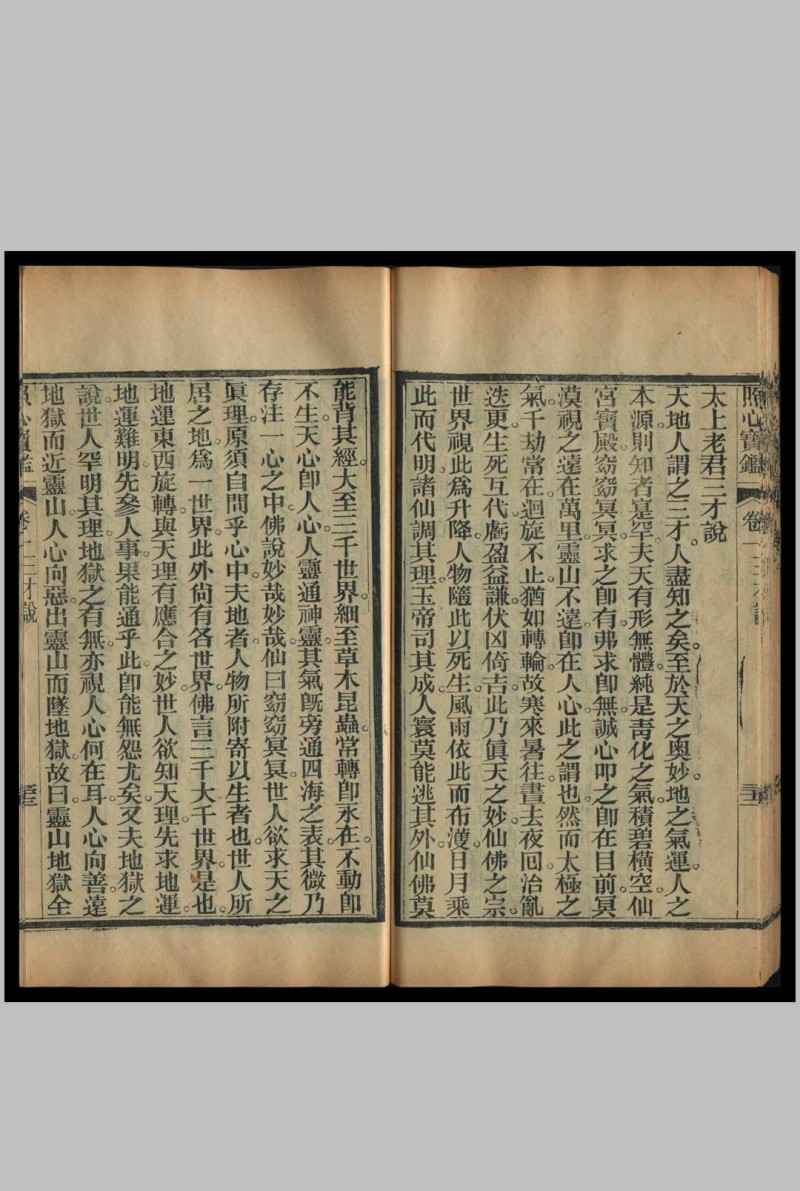 照心寶鑑 卷一
太上老君三才說
天地人謂之三才。人盡知之矣。至於天之奧妙。地之氣運。人之
本源。則知者寔罕。夫天有形無體。純是靑化之氣。積碧橫空。仙
宮寶殿。窈窈冥冥。求之卽有。弗求卽無。誠心叩之。卽在目前。冥
漠視之。遠在萬里。靈山不遠。卽在人心。此之謂也。然而太極之
氣。千劫常在。迴旋不止。猶如轉輪。故寒來暑往。晝去夜回。治亂
迭更。生死互代。虧盈益謙。伏凶倚吉。此乃眞天之妙。仙佛之宗。
世界視此爲升降。人物隨此以死生。風雨依此而布濩。日月乘
此而代明。諸仙調其理。玉帝司其成。人寰莫能逃其外。仙佛莫
能背其經。大至三千世界。細至草木昆蟲。常轉卽永在。不動卽
不生。天心卽人心。人靈通神靈。其氣旣旁通四海之表。其微乃
存注一心之中。佛說妙哉妙哉。仙曰窈窈冥冥。世人欲求天之
眞理。原須自問乎心中。夫地者。人物所附寄以生者也。世人所
居之地。爲一世界。此外尙有各世界。佛言三千大千世界是也。
地運東西旋轉。與天理有應合之妙。世人欲知天理。先求地運。
地運難明。先參人事。果能通乎此。卽能無怨尤矣。又夫地獄之
說。世人罕明其理。地獄之有無。亦視人心何在耳。人心向善。遠
地獄而近靈山。人心向惡。出靈山而墜地獄。故曰。靈山地獄。全
照心寶鑑 卷一 三才說 三三